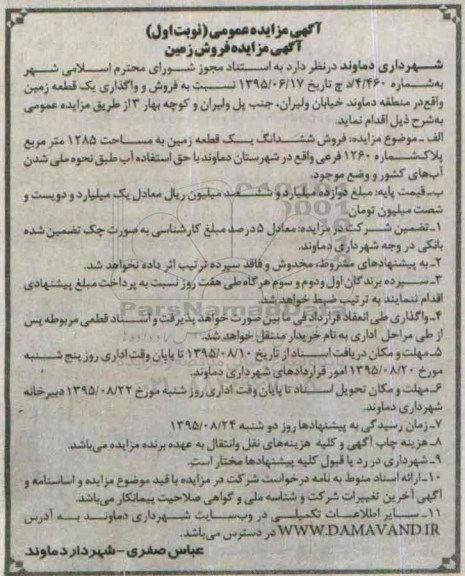 آگهی مزایده عمومی (نوبت اول)
آگهی مزایده فروش زمین
شهرداری دماوند درنظر دارد به استناد مجوز شورای محترم اسلامی شهر
به‌شماره ۴/۴۶۰/د چ تاریخ ۱۳۹۵/۰۶/۱۷ نسبت به فروش و واگذاری یک قطعه زمین
واقع در منطقه دماوند خیابان ولیران، جنب پل ولیران و کوچه بهار ۳ از طریق مزایده عمومی
به‌شرح ذیل اقدام نماید.
الف ـ موضوع مزایده: فروش ششدانگ یک قطعه زمین به مساحت ۱۲۸۵ متر مربع
پلاک‌شماره ۱۲۶۰ فرعی واقع در شهرستان دماوند با حق استفاده آب طبق نحوه ملی شدن
آب‌های کشور و وضع موجود.
ب‌ـ قیمت پایه: مبلغ دوازده میلیارد و ششصد میلیون ریال معادل یک میلیارد و دویست و
شصت میلیون تومان
۱ـ تضمین شرکت در مزایده: معادل ۵ درصد مبلغ کارشناسی به صورت چک تضمین شده
بانکی در وجه شهرداری دماوند.
۲ـ به پیشنهادهای مشروط، مخدوش و فاقد سپرده ترتیب اثر داده نخواهد شد.
۳ـ سپرده برندگان اول ودوم و سوم هرگاه طی هفت روز نسبت به پرداخت مبلغ پیشنهادی
اقدام ننمایند به ترتیب ضبط خواهد شد.
۴ـ واگذاری طی انعقاد قرارداد فی مابین صورت خواهد پذیرفت و اسناد قطعی مربوطه پس
از طی مراحل اداری به نام خریدار منتقل خواهد شد.
۵ـ مهلت و مکان دریافت اسناد از تاریخ ۱۳۹۵/۰۸/۱۰ تا پایان وقت اداری روز پنج شنبه
مورخ ۱۳۹۵/۰۸/۲۰ امور قراردادهای شهرداری دماوند.
۶ـ مهلت و مکان تحویل اسناد تا پایان وقت اداری روز شنبه مورخ ۱۳۹۵/۰۸/۲۲ دبیرخانه
شهرداری دماوند.
۷ـ زمان رسیدگی به پیشنهادها روز دو شنبه ۱۳۹۵/۰۸/۲۴
۸ـ هزینه چاپ آگهی و کلیه هزینه‌های نقل وانتقال به عهده برنده مزایده می‌باشد.
۹ـ شهرداری در رد یا قبول کلیه پیشنهادها مختار است.
۱۰ـ ارائه اسناد منوط به نامه درخواست شرکت در مزایده با قید موضوع مزایده و اساسنامه و
آگهی آخرین تغییرات شرکت و شناسه ملی و گواهی صلاحیت پیمانکار می‌باشد.
۱۱ـ سایر اطلاعات تکمیلی در وب‌سایت شهرداری دماوند به آدرس
WWW.DAMAVAND.IR در دسترس می‌باشد.
عباس صفری - شهردار دماوند